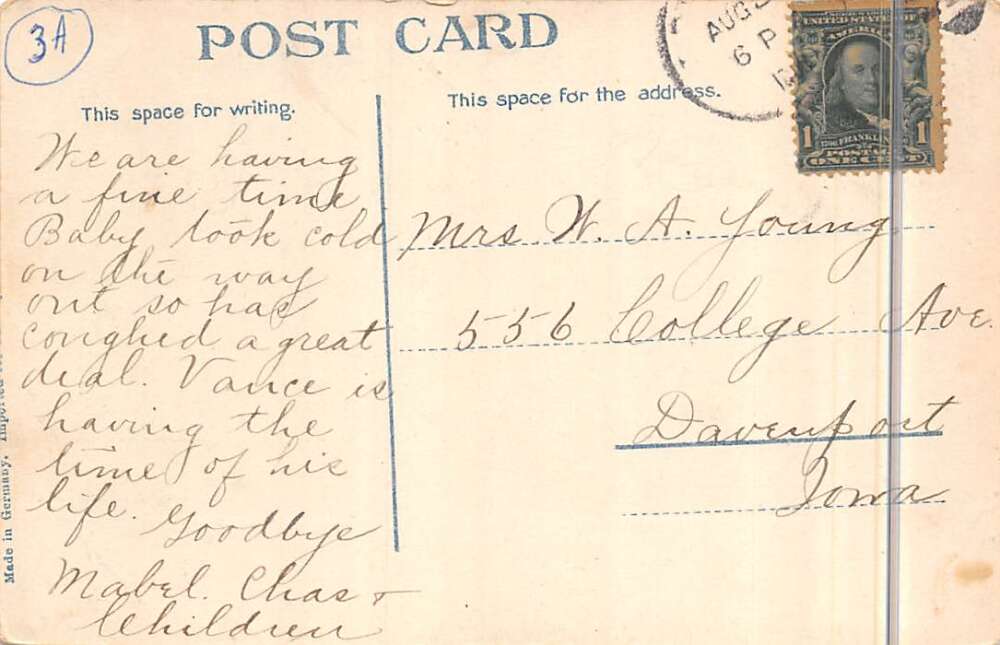 3A
POST CARD
AUG
6 P
This space for writing.
This space for the address.
UNITED STATES OF
AMERICA
1 FRANKLIN 1
POSTAGE
ONE CENT
We are having
a fine time
Baby took cold
on the way
out so has
coughed a great
deal. Vance is
having the
time of his
life. Goodbye
Mabel. Chas +
Children
Mrs W. A. Young
556 College Ave.
Davenport
Iowa
Made in Germany.